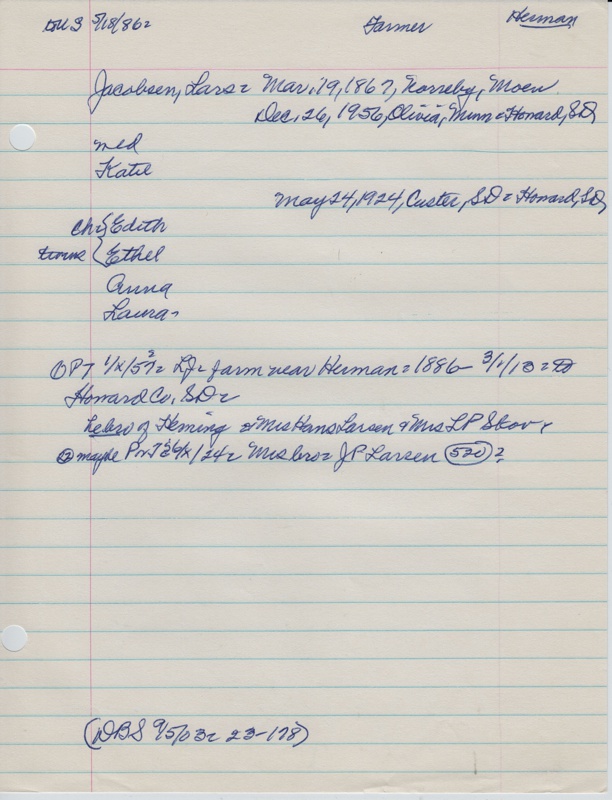 5/18/86 Farmer Herman
Jacobsen, Lars = Mar. 19, 1867, Norreby, Moen
Dec. 26, 1956, Olivia, Minn = Howard, SD
med
Katie
May 24, 1924, Custer, SD = Howard, SD
ch= { Edith
twins { Ethel
Anna
Laura-
OPT 1/X/57= LJ= farm near Herman = 1886- 3/1/13 = to
Howard Co, SD=
he bro of Fleming & Mrs Hans Larsen & Mrs LP Skov.
maybe /24= Mrs bro= JP Larsen (520) ?
(DBS 9/5/03= 23-178)